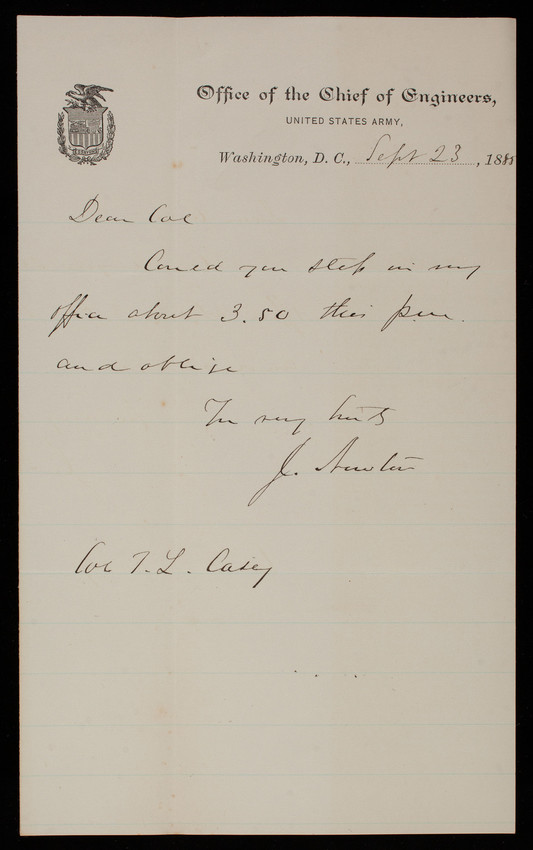 Office of the Chief of Engineers,
UNITED STATES ARMY,
Washington, D. C., Sept 23, 1885
Dear Col
Could you step in my
office about 3.50 this p.m.
and oblige
Yrs very truly
J. Newton
Col T. L. Casey